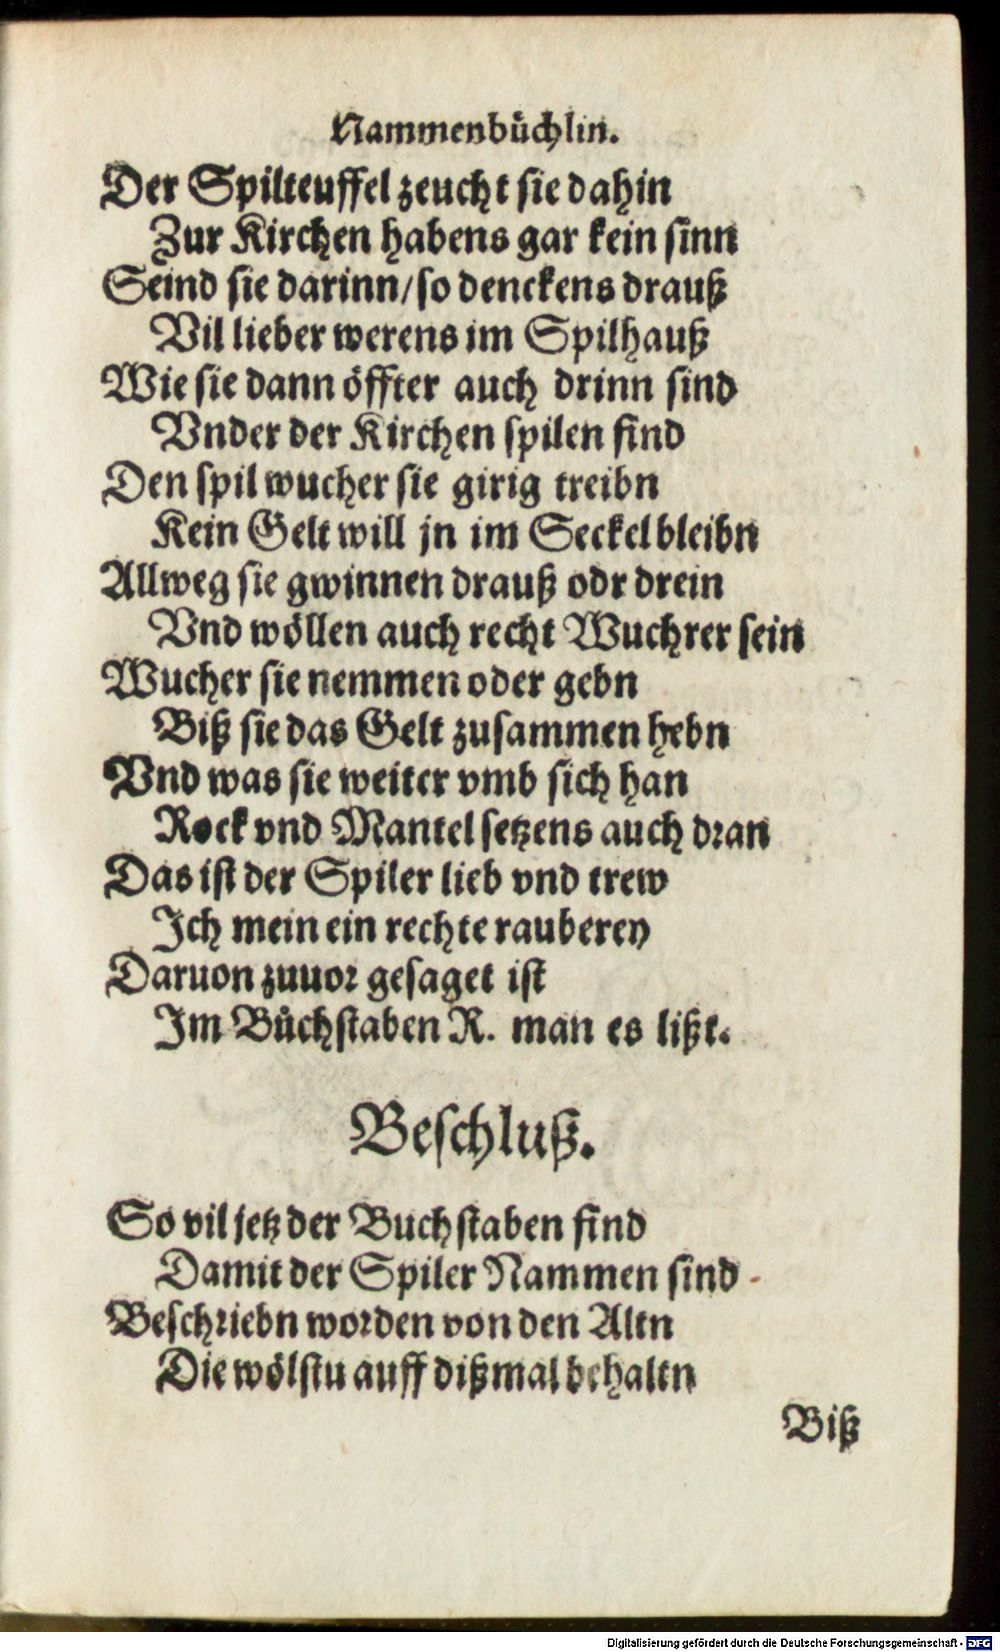 Nammenbůchlin.
Der Spilteuffel zeucht sie dahin
Zur Kirchen habens gar kein sinn
Seind sie darinn/so denckens drauß
Vil lieber werens im Spilhauß
Wie sie dann öffter auch drinn sind
Vnder der Kirchen spilen find
Den spil wucher sie girig treibn
Kein Gelt will jn im Seckel bleibn
Allweg sie gwinnen drauß odr drein
Vnd wöllen auch recht Wuchrer sein
Wucher sie nemmen oder gebn
Biß sie das Gelt zusammen hebn
Vnd was sie weiter vmb sich han
Rock vnd Mantel setzens auch dran
Das ist der Spiler lieb vnd trew
Ich mein ein rechte rauberey
Daruon zuuor gesaget ist
Im Bůchstaben R. man es lißt.
Beschluß.
So vil jetz der Buchstaben find
Damit der Spiler Nammen sind
Beschriebn worden von den Altn
Die wölstu auff dißmal behaltn
Biß
Digitalisierung gefördert durch die Deutsche Forschungsgemeinschaft - DFG